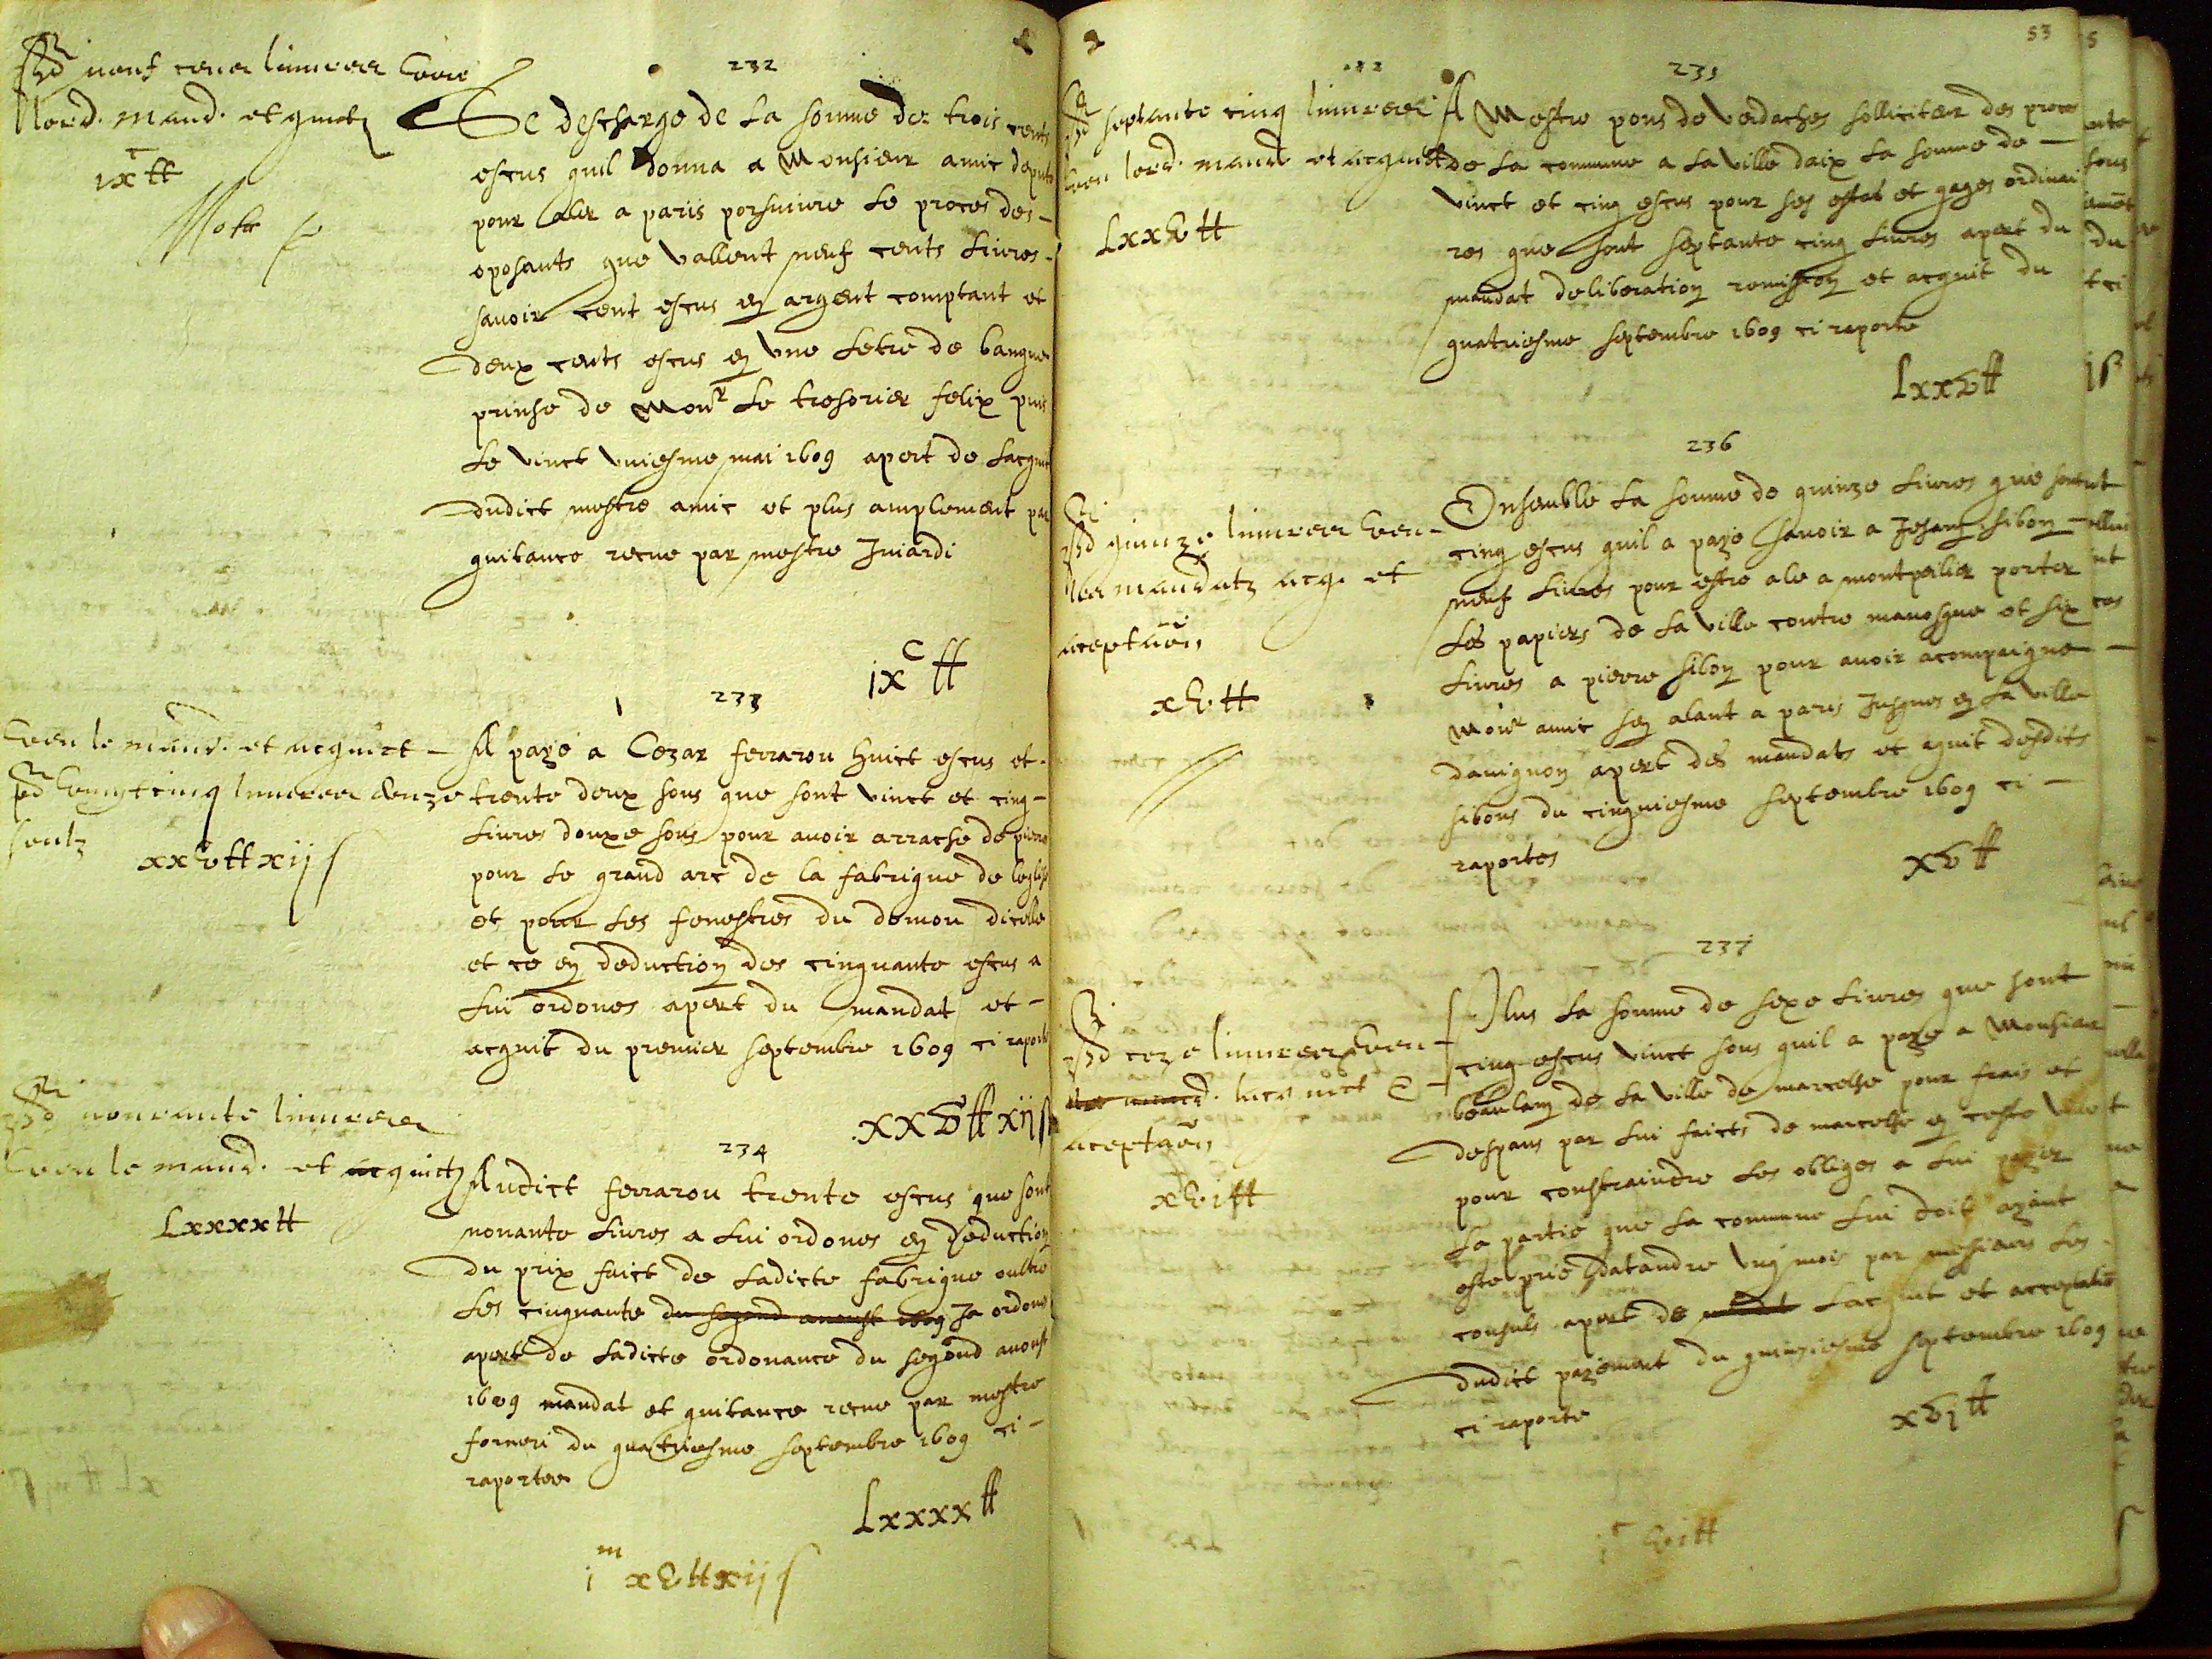 232
neuf cens livres veu
lord. mand. et quict.
ixc ll
Nota
Se descharge de la somme des trois cents
escus quil donna a Monsieur amic depute
pour aler a paris porsuivre le proces des
oposants que vallent neuf cents livres
savoir cent escus en argent comptant et
deux cents escus en une letre de banque
prinse de Monr le tresorier felix puis
le vinct uniesme mai 1609 apert de lacquit
dudict mestre amic et plus amplement par
quitance receue par mestre Juiardi
ixc ll
233
veu le mand. et acquict
vingt cinq livres douze
soulz
xxv ll xii s
A paye a Cezar ferrarou huict escus et
trente deux sous que sont vinct et cinq
livres douxe sous pour avoir arrache de pierre
pour le grand arc de la fabrique de leglise
et pour les fenestres du demou dicelle
et ce en deduction des cinquante escus a
lui ordones apert du mandat et
acquit du premier septembre 1609 ci raporte
xxv ll xii s
234
nonrante livres
veu le mand. et acquict
Lxxxx ll
Audict ferrarou trente escus que sont
nonante livres a lui ordones en deduction
du prix faict de ladicte fabrique oultre
les cinquante du segond avoust 1609 ja ordones
apert de ladicte ordonance du segond avoust
1609 mandat et quitance receue par mestre
forneri du quatriesme septembre 1609 ci
raportee
Lxxxx ll
im xv ll xii s
53
235
septante cinq livres
veu lord. mand. et acquict
Lxxv ll
A Mestre pons de verdaches solliciteur des proces
de la commune a la ville daix la somme de
vinct et cinq escus pour ses estat et gages ordinai
res que sont septante cinq livres apert du
mandat deliberation remission et acquit du
quatriesme septembre 1609 ci raporte
Lxxv ll
236
quinze livres veu
les mandatz acq. et
aceptaon
xv ll
Ensemble la somme de quinze livres que sont
cinq escus quil a paye savoir a Jehan sibon
neuf livres pour estre ale a montpelier porter
les papiers de la ville contre manosque et six
livres a pierre sibon pour avoir acompaigne
Monr amic sen alant a paris jusques en la ville
davignon apert des mandats et aquit desdits
sibons du cinquiesme septembre 1609 ci
raportes
xv ll
237
seze livres veu
aceptaon
xvi ll
Plus la somme de sexe livres que sont
cinq escus vinct sous quil a paye a Monsieur
beaulan de la ville de marcelhe pour frais et
despans par lui faicts de marcelhe en ceste ville
pour constraindre les obliges a lui paier
la partie que la commune lui doit ayant
este prie datandre ung mois par messieurs les
consuls apert de mandat lacquit et acceptation
dudict payement du quinziesme septembre 1609
ci raporte
xvi ll
ic vi ll